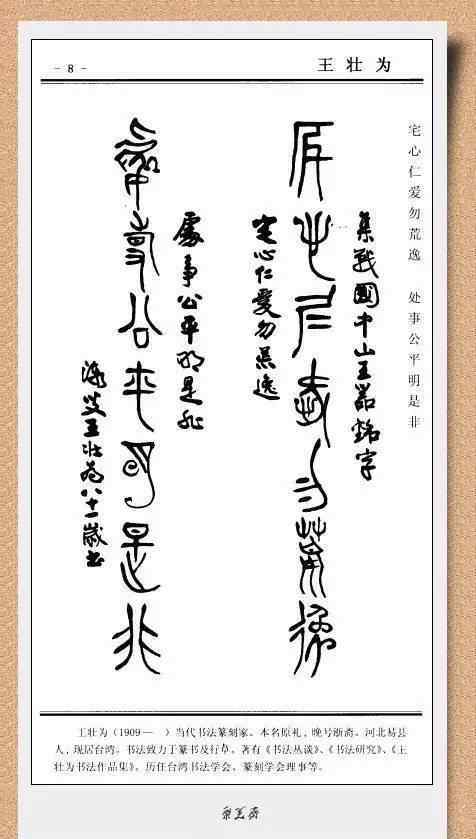 - 8 -
王 壮 为
宅心仁爱勿荒逸 处事公平明是非
集戰國中山王器銘字
宅心仁愛勿荒逸
宅心仁愛勿荒逸
處事公平明是非
處事公平明是非
漸叟王壯為八十一歲書
王壮为(1909— )当代书法篆刻家。本名原礼,晚号渐斋。河北易县
人,现居台湾。书法致力于篆书及行草。著有《书法丛谈》、《书法研究》、《王
壮为书法作品集》。历任台湾书法学会、篆刻学会理事等。